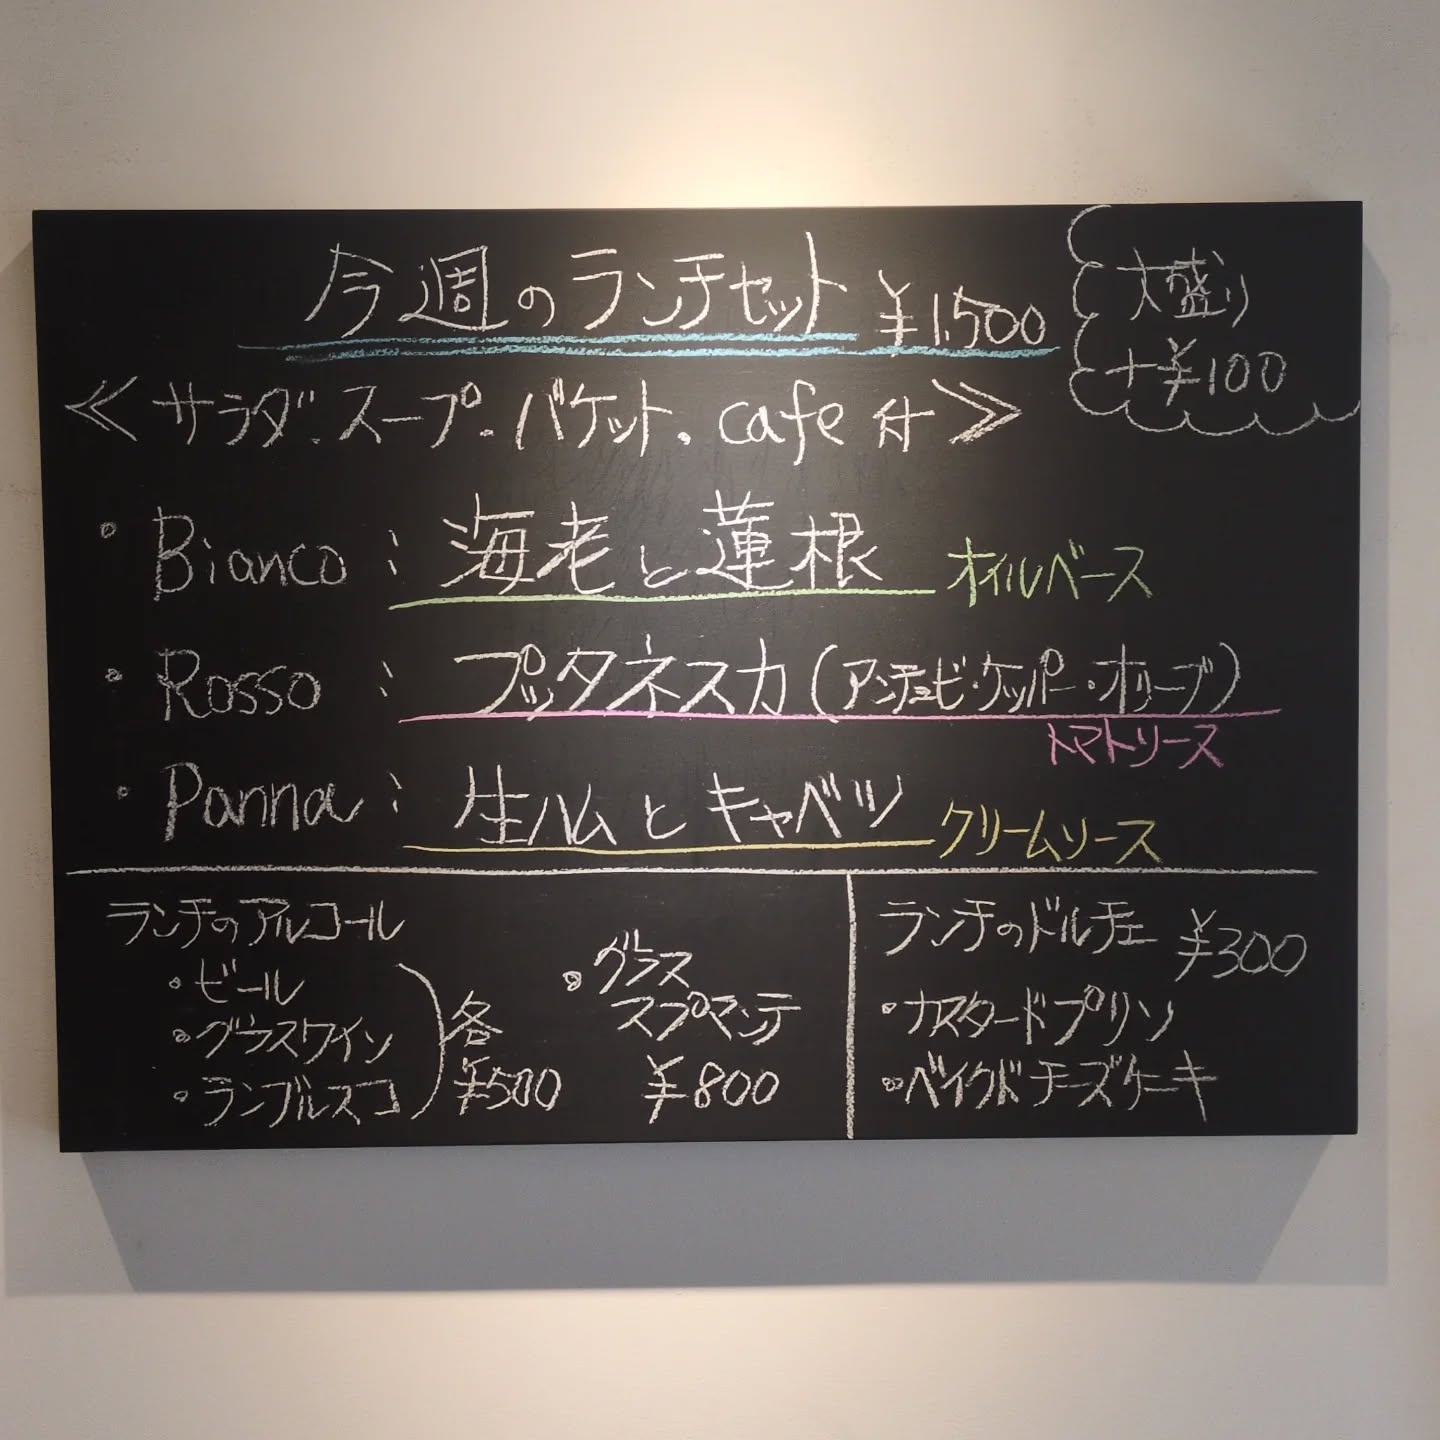 今週のランチセット ¥1,500
大盛り
+¥100
≪サラダ・スープ・バケット・cafe付≫
・Bianco：海老と蓮根 オイルベース
・Rosso：プッタネスカ（アンチョビ・ケッパー・オリーブ）
トマトソース
・Panna：生ハムとキャベツ クリームソース
ランチのアルコール
・ビール
・グラスワイン
・ランブルスコ
各
¥500
・グラス
スプマンテ
¥800
ランチのドルチェ ¥300
・カスタードプリン
・ベイクドチーズケーキ